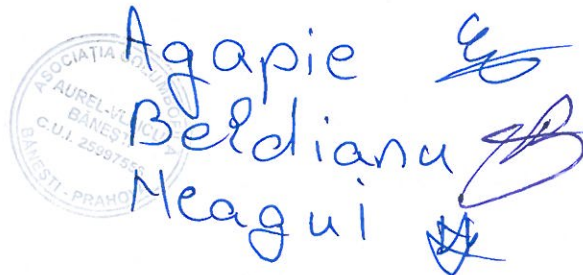 Agapie
Beldianu
Neagui
ASOCIAȚIA COLUMBOFILA
AUREL-VLAICU
BĂNEȘTI
C.U.I. 25997550
BĂNEȘTI - PRAHOVA